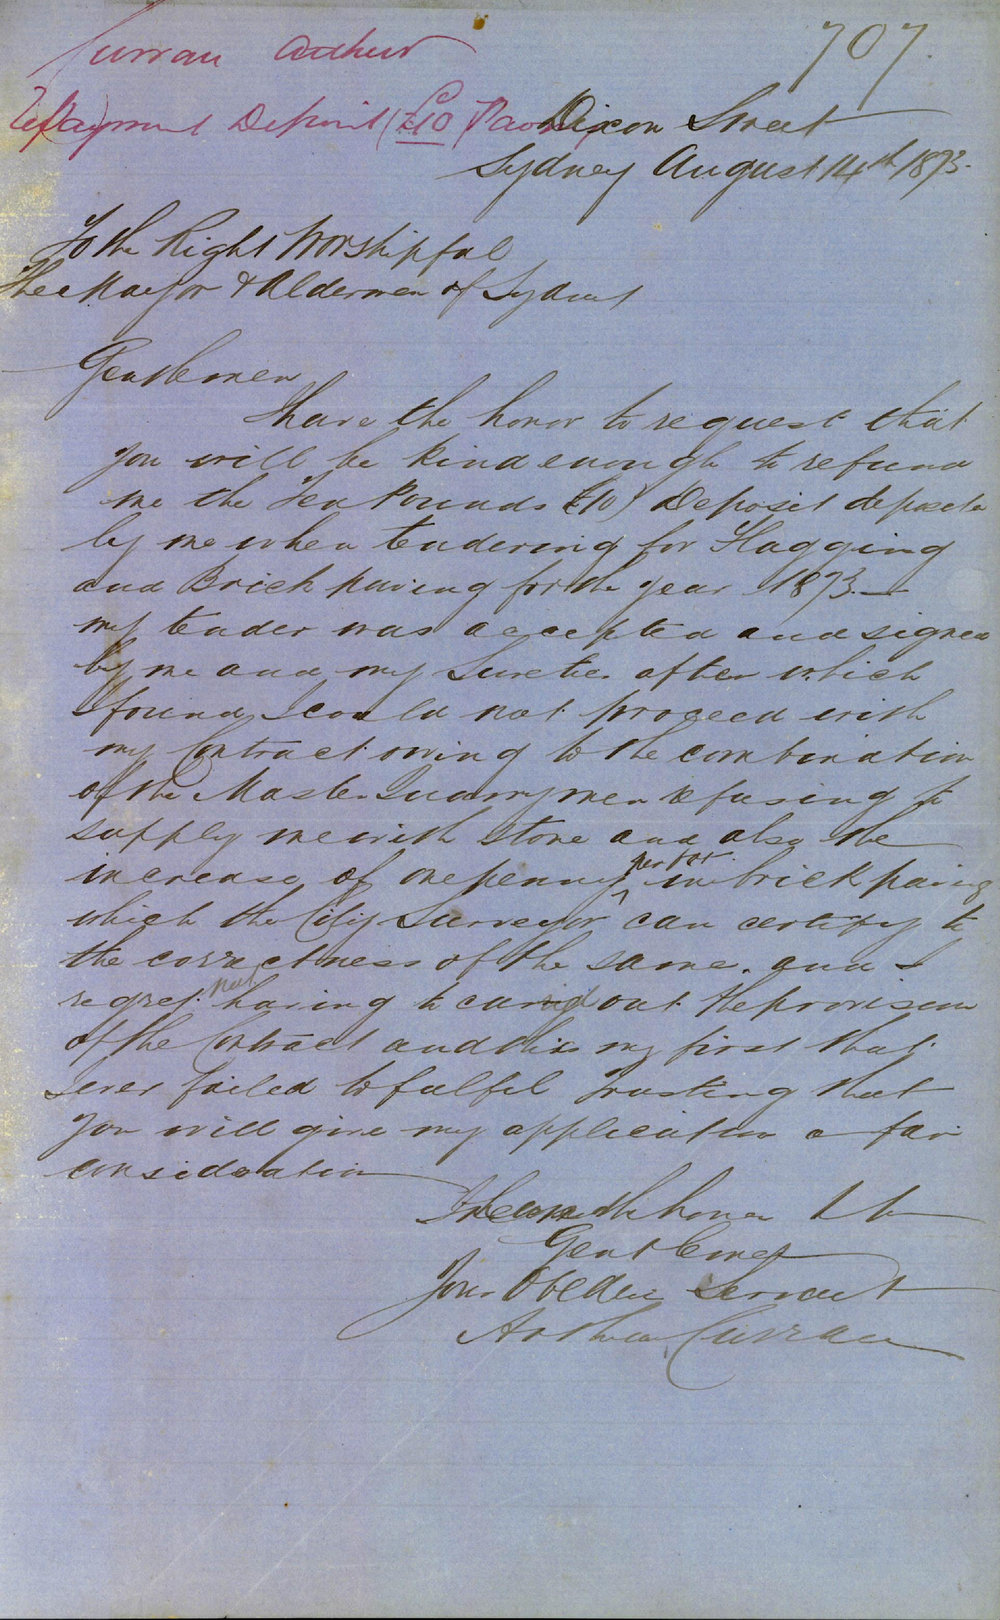 Curran Arthur
707.
Repayment Deposit (£10) Paving
Dixon Street
Sydney August 14th 1873.
To the Right Worshipful
The Mayor & Aldermen of Sydney
Gentlemen
I have the honor to request that
you will be kind enough to refund
me the Ten Pounds (£10) Deposit deposited
by me when tendering for Flagging
and Brick paving for the year 1873.—
my tender was accepted and signed
by me and my Sureties after which
I found I could not proceed with
my Contract owing to the combination
of the Master Quarrymen refusing to
supply me with stone and also the
increase of one penny per foot in brick paving
which the City Surveyor can certify to
the correctness of the same. and I
regret not having to carried out the provisions
of the Contract and this my first that
I ever failed to fulfil Trusting that
you will give my application a fair
consideration
I have the honor to be
Gentlemen
Your Obedient Servant
Arthur Curran